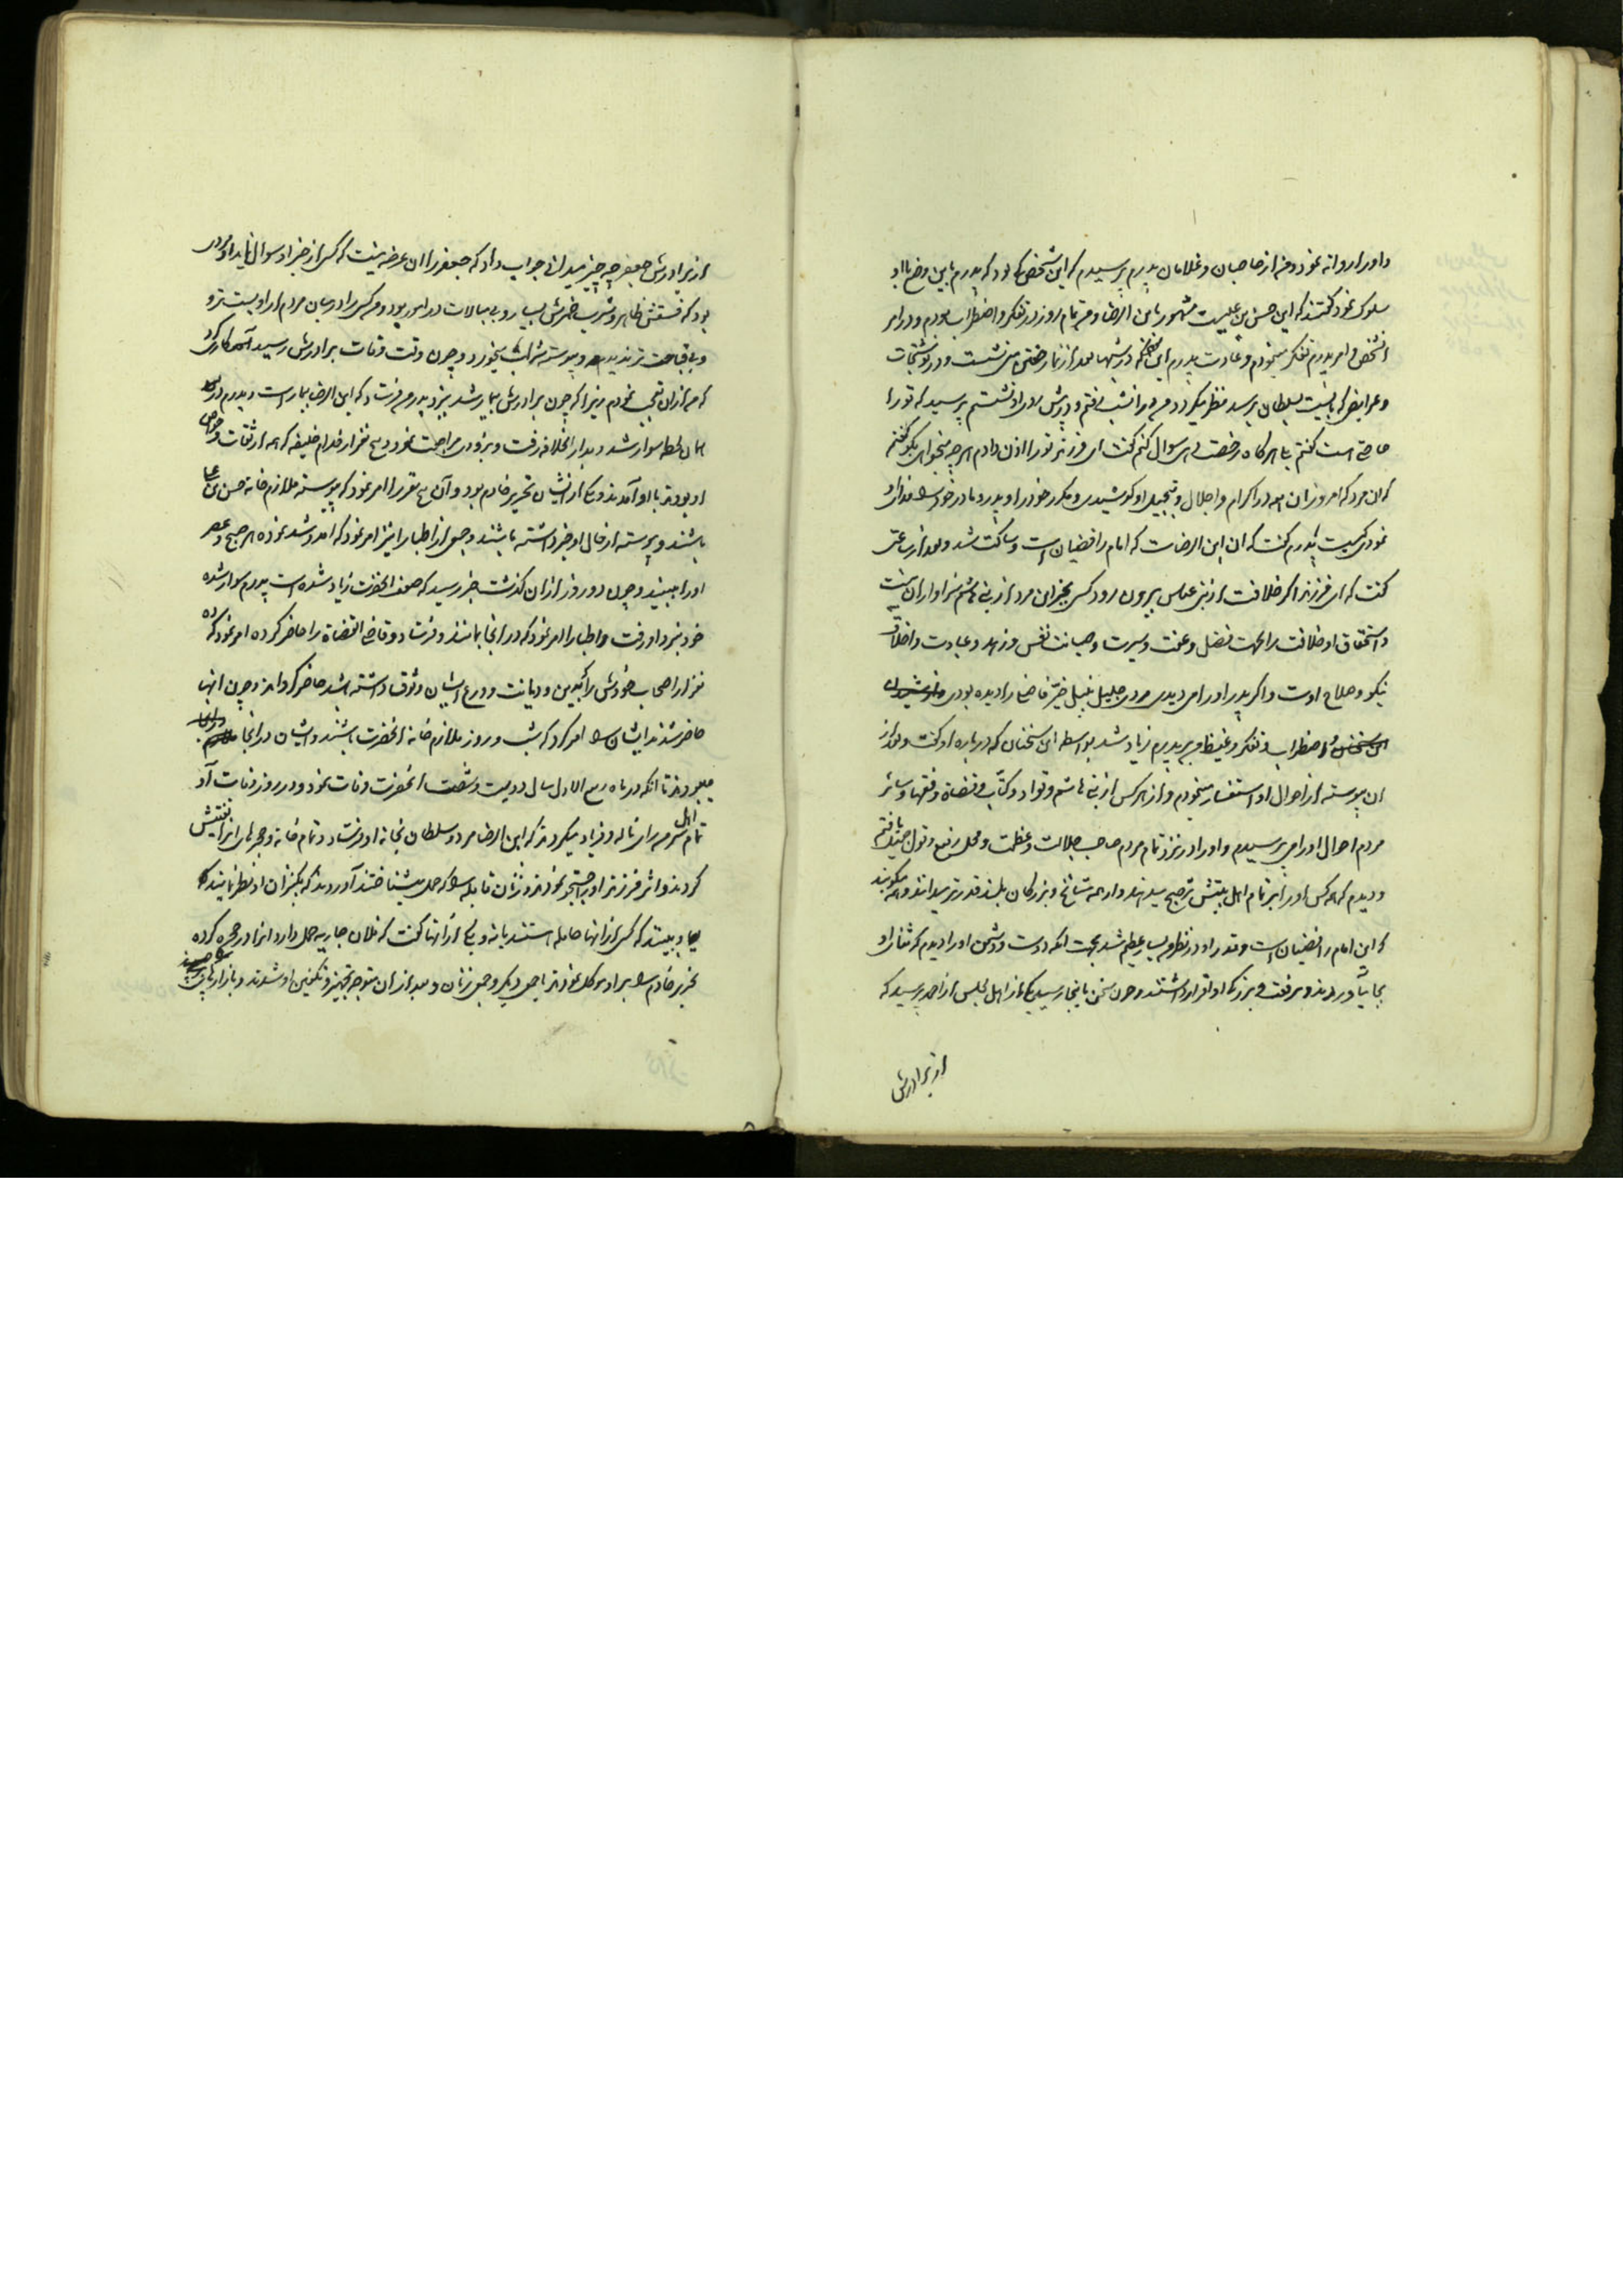 داورا روانه نمود و من از حاجبان و غلامان پدرم پرسیدم که این شخص که بود که پدرم باین وضع با او
سلوک نمود گفتند که این حسن بن علیست مشهور بابن الرضا و من تمام روز در تفکر و اضطراب بودم و در امر
آنشخص و امر پدرم تفکر مینمودم و عادت پدرم این بود که در شبها بعد از نماز خفتن می نشست و در نوشتجات
و عرایض که بایست بسلطان برسد نظر میکرد و من در آنشب رفتم و در پیش او نشستم پرسید که تو را
حاجتی است گفتم بلی هرگاه رخصت دهی سوال کنم گفت ای فرزند تو را اذن دادم هرچه میخواهی بگو گفتم
که آن مرد که امروز این همه در اکرام و اجلال و تبجیل او کوشیدی و مکرر خود را و پدر و مادر خود را فدای او
نمودی کیست پدرم گفت که آن ابن الرضاست که امام رافضیان است و ساکت شد و بعد از ساعتی
گفت که ای فرزند اگر خلافت از بنی عباس بیرون رود کسی بجز این مرد از بنی هاشم سزاوار آن نیست
و استحقاق او خلافت را بجهت فضل و عفت و سیرت و صیانت نفس و زهد و عبادت و اخلاق
نیکو و صلاح اوست و اگر پدر او را می دیدی مردی جلیل نبیل خیر فاضل را دیده بودی
این سخنان اضطراب و تفکر و غیظ من بر پدرم زیاد شد بواسطه این سخنان که در باره او گفت و بعد از
آن پیوسته از احوال او استفسار مینمودم و از هر کس از بنی هاشم و قواد و کتّاب و قضاة و فقها و سائر
مردم احوال او را می پرسیدم و او را در نزد تمام مردم صاحب جلالت و عظمت و محل رفیع و قول جمیل یافتم
و دیدم که همه کس او را بر تمام اهل بیتش ترجیح میدهند و از همه مشایخ و بزرگان بلند قدرتر میدانند و همه میگویند
که این امام رافضیان است و قدر او در نظر من بسیار عظیم شد بجهت آنکه دوست و دشمن او را دیدم که ثنای او
بجا میآوردند و برفعت و بزرگی او اقرار داشتند و چون سخن باینجا رسید یکی از اهل مجلس از احمد پرسید که
از برادرش
از برادرش جعفر چه چیز میدانی جواب داد که جعفر را آن عرضه نیست که کسی از خبر او سوال نماید او مردی
بود که فسقش ظاهر و شرب خمرش بسیار و بی مبالات در امور بود و من کسی را در میان مردم از او پست تر و
و بی قباحت تر ندیدم و پیوسته شراب میخورد و چون وقت وفات برادرش رسید کاری کرد
که من از آن تعجب نمودم زیرا که چون برادرش بیمار شد بنزد پدرم فرستاد که ابن الرضا بیمار است و پدرم در
همان لحظه سوار شد و بدار الخلافه رفت و بزودی مراجعت نمود و پنج نفر از خدام خلیفه که همه از ثقات و خواص
او بودند با او آمدند و یکی از ایشان نحریر خادم بود و آن پنج نفر را امر نمود که پیوسته ملازم خانه حسن بن علی
باشند و پیوسته از حال او خبر داشته باشند و جمعی از اطبا را نیز امر نمود که آمد و شد نموده هر صبح و عصر
او را ببینند و چون دو روز از آن گذشت خبر رسید که ضعف آنحضرت زیاد شده است پدرم سوار شده
خود بنزد او رفت و اطبا را امر نمود که در آنجا بمانند و فرستاد و قاضی القضاة را حاضر کرده امر نمود که ده
نفر از اصحاب خودش را که بدین و دیانت و ورع ایشان وثوق داشته باشد حاضر گرداند و چون آنها
حاضر شدند ایشان را امر کرد که شب و روز ملازم خانه آنحضرت باشند و ایشان در آنجا
میبودند تا آنکه در ماه ربیع الاول سال دویست و شصت آنحضرت وفات نمود و در روز وفات او
تمام اهل سر من رای ناله و فریاد میکردند که ابن الرضا مرد و سلطان بخانه او فرستاد و تمام خانه و حجرهای آنرا تفتیش
کردند و اثر فرزند او جستجو نمودند و زنان قابله را که حمل میشناختند آوردند که بکنیزان او نظر نمایند که
و ببینند که کسی از آنها حامله هستند یا نه و یکی از آنها گفت که فلان جاریه حمل دارد او را در حجره کرده
نحریر خادم را بر او موکل نمودند با جمعی دیگر و جمعی زنان و بعد از آن متوجه تجهیز و تکفین او شدند و بازارها